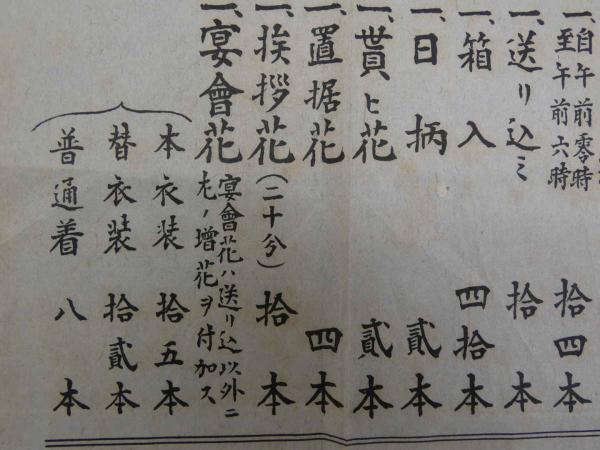 一、自午前零時
至午前六時 拾四本
一、送リ込ミ 拾本
一、箱入 四拾本
一、日柄 貳本
一、貰ヒ花 貳本
一、置据花 四本
一、挨拶花（二十分） 拾本
一、宴會花 宴會花ハ送リ込以外ニ
左ノ增花ヲ付加ス
本衣装 拾五本
替衣装 拾貳本
普通着 八本